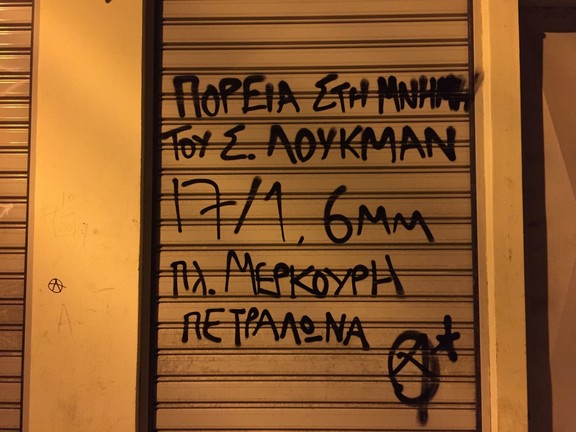 ΠΟΡΕΙΑ ΣΤΗ ΜΝΗΜΗ
ΤΟΥ Σ. ΛΟΥΚΜΑΝ
17/1, 6ΜΜ
ΠΛ. ΜΕΡΚΟΥΡΗ
ΠΕΤΡΑΛΩΝΑ